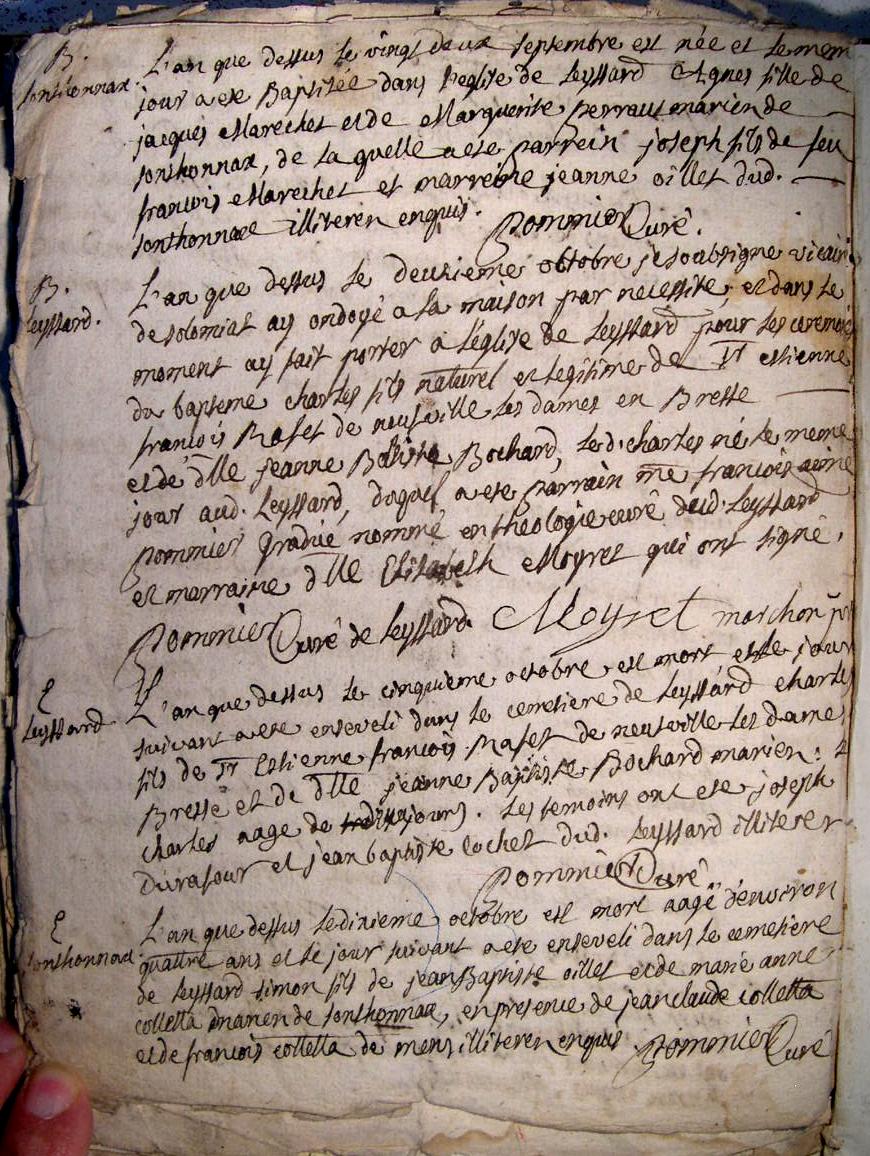 B.
Sonthonnax.
L'an que dessus le vingt deux septembre est née et le mem
jour a ete Baptisée dans l'eglise de Leyssard Agnes fille de
jacques Marechet et de Marguerite perraut marien de
sonthonnax, de la quelle a ete parrein joseph fils de feu
francois Marechet et marreine jeanne oillet dud.
sonthonnax illiteren enquis.
Pommier Curé.
B.
Leyssard.
L'an que dessus le deuxieme octobre je soubsigne vicair
de solomiat ay ondoyé a la maison par necessité, et dans le
moment ay fait porter a l'église de Leyssard pour les ceremo
du bapteme charles fils naturel et legitime de Sr estienne
francois Rafet de neufville les dames en Bresse
et de dlle jeanne Batiste Bochard, led. charles né le meme
jour aud. Leyssard, duquel a ete parrain me francois aimé
pommier gradué nommé en theologie curé dud. Leyssard
et marraine dlle Elisabeth Moyret qui ont signé.
Pommier Curé de Leyssard. Moyret marchon
E
Leyssard
L'an que dessus le cinquieme octobre est mort et le jour
suivant a ete enseveli dans le cemetiere de Leyssard charles
fils de Sr Estienne francois Rafet de neufville les dame
Bresse et de dlle jeanne Baptiste Bochard marien:
charles aage de jours. Les temoins ont ete joseph
Durafour et jean baptiste Cochet dud. Leyssard illiterer
Pommier Curé
E
Sonthonnax
L'an que dessus le dixieme octobre est mort aagé d'environ
quattre ans et le jour suivant a ete enseveli dans le cemetiere
de Leyssard simon fils de jean Baptiste oillet et de marie anne
colletta mariien de sonthonnax, en presence de jean claude colletta
et de francois colletta de mens illiteren enquis Pommier Curé